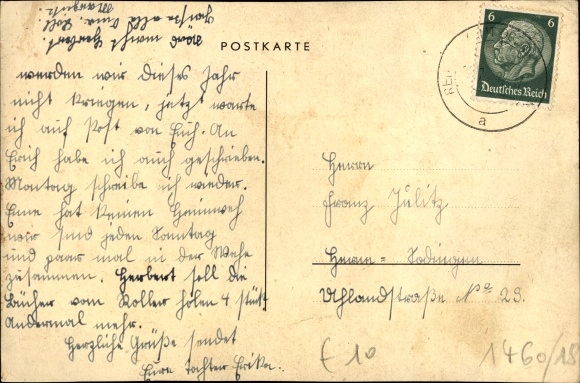 Was macht Herbert.
Grüße alle Oma, Loll
Margret.
POSTKARTE
6 6
Deutsches Reich
a
werden wir dieses Jahr
nicht kriegen, jetzt warte
ich auf Post von Euch. An
Erich habe ich auch geschrieben.
Montag schreibe ich wieder.
Enne hat keinen Heimweh
wir sind jeden Sonntag
und paar mal in der Woche
zusammen. Herbert soll die
Bücher vom Koller holen 4 stück
Andermal mehr.
Herzliche Grüße sendet
Eure Tochter Erika.
Herrn
Franz Jülitz
Herne = Sodingen
Uhlandstraße No 29.
E 10
1460/18